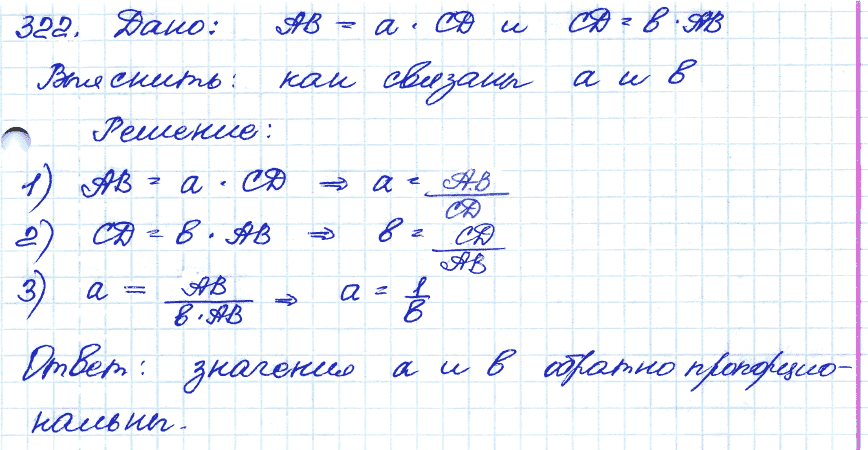 322. Дано: AB = a · CD и CD = в · AB
Выяснить: как связаны a и в
Решение:
1) AB = a · CD ⇒ a = AB/CD
2) CD = в · AB ⇒ в = CD/AB
3) a = AB/в · AB ⇒ a = 1/в
Ответ: значения a и в обратно пропорцио-
нальны.